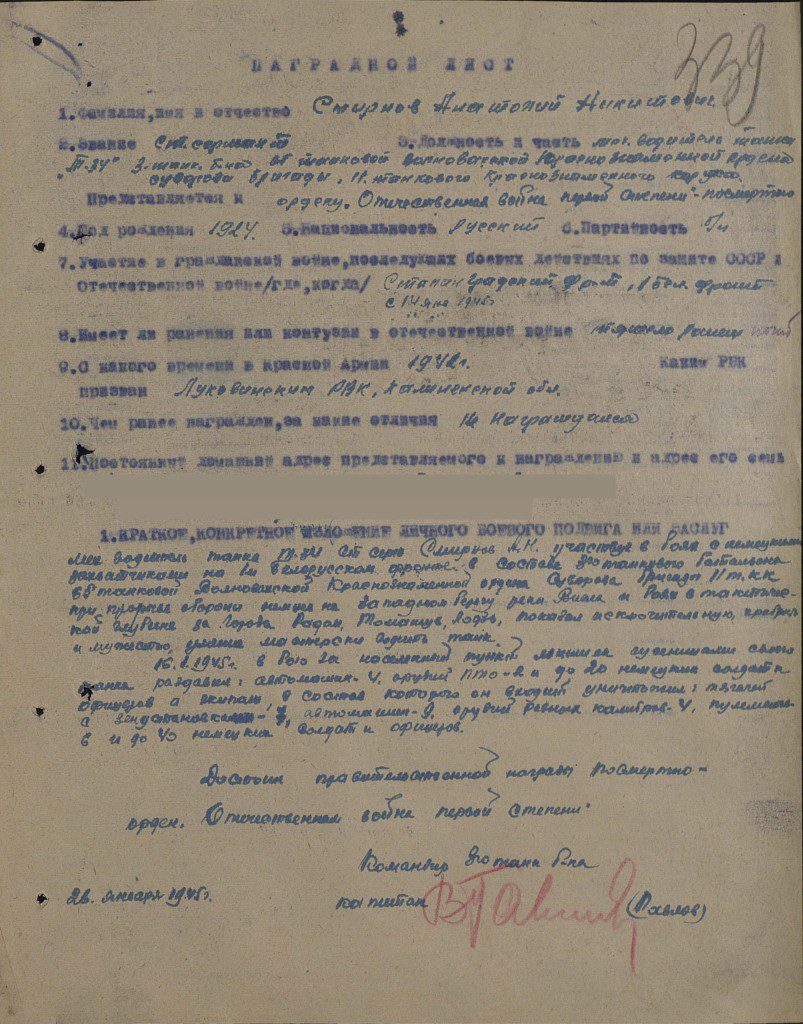 339
НАГРАДНОЙ ЛИСТ
1. Фамилия, имя и отчество Смирнов Анатолий Никитович
2. Звание Ст. сержант 3. Должность и часть мех. водитель танка
"Т-34" 3 танк. б-на 65 танковой Волновахской Краснознаменной ордена
Суворова бригады, 11 танкового Краснознаменного корпуса
Представляется к ордену "Отечественная война первой степени"-посмертно
4. Год рождения 1924 5. Национальность Русский 6. Партийность б/п
7. Участие в гражданской войне, последующих боевых действиях по защите СССР и
Отечественной войне /где, когда/ Сталинградский фронт, 1 Бел. фронт
с 14 янв. 1945г.
8. Имеет ли ранения или контузии в отечественной войне тяжело ранен
9. С какого времени в Красной Армии 1942г. Каким РВК
призван Луковинским РВК, Калининской обл.
10. Чем ранее награжден, за какие отличия Не награждался
11. Постоянный домашний адрес представляемого к награждению и адрес его семь
1. КРАТКОЕ, КОНКРЕТНОЕ ИЗЛОЖЕНИЕ ЛИЧНОГО БОЕВОГО ПОДВИГА ИЛИ ЗАСЛУГ
Мех водитель танка Т-34 ст серж Смирнов А.Н. участвуя в боях с немецкими
захватчиками на 1м Белорусском фронте в составе 3го танкового батальона
65 танковой Волновахской Краснознаменной ордена Суворова бригады 11 т.к.к
при прорыве обороны немцев на западном берегу реки Висла и боях в тактичес-
кой глубине за города Радом, Томашув, Лодзь, показал исключительную храбрость
и мужество, умение мастерски водить танк.
16.1.1945г. в бою за населенный пункт гусеницами своего
танка раздавил: автомашин-4, орудий ПТО-2 и до 20 немецких солдат и
офицеров а экипаж, в составе которого он входит уничтожил: тягачей
с автомашин-9, орудий разных калибров-4, пулеметов-
6 и до 40 немецких солдат и офицеров.
Достоин правительственной награды посмертно-
орден "Отечественная война первой степени"
Командир 3го танк б-на
26 января 1945г. капитан (Павлов)